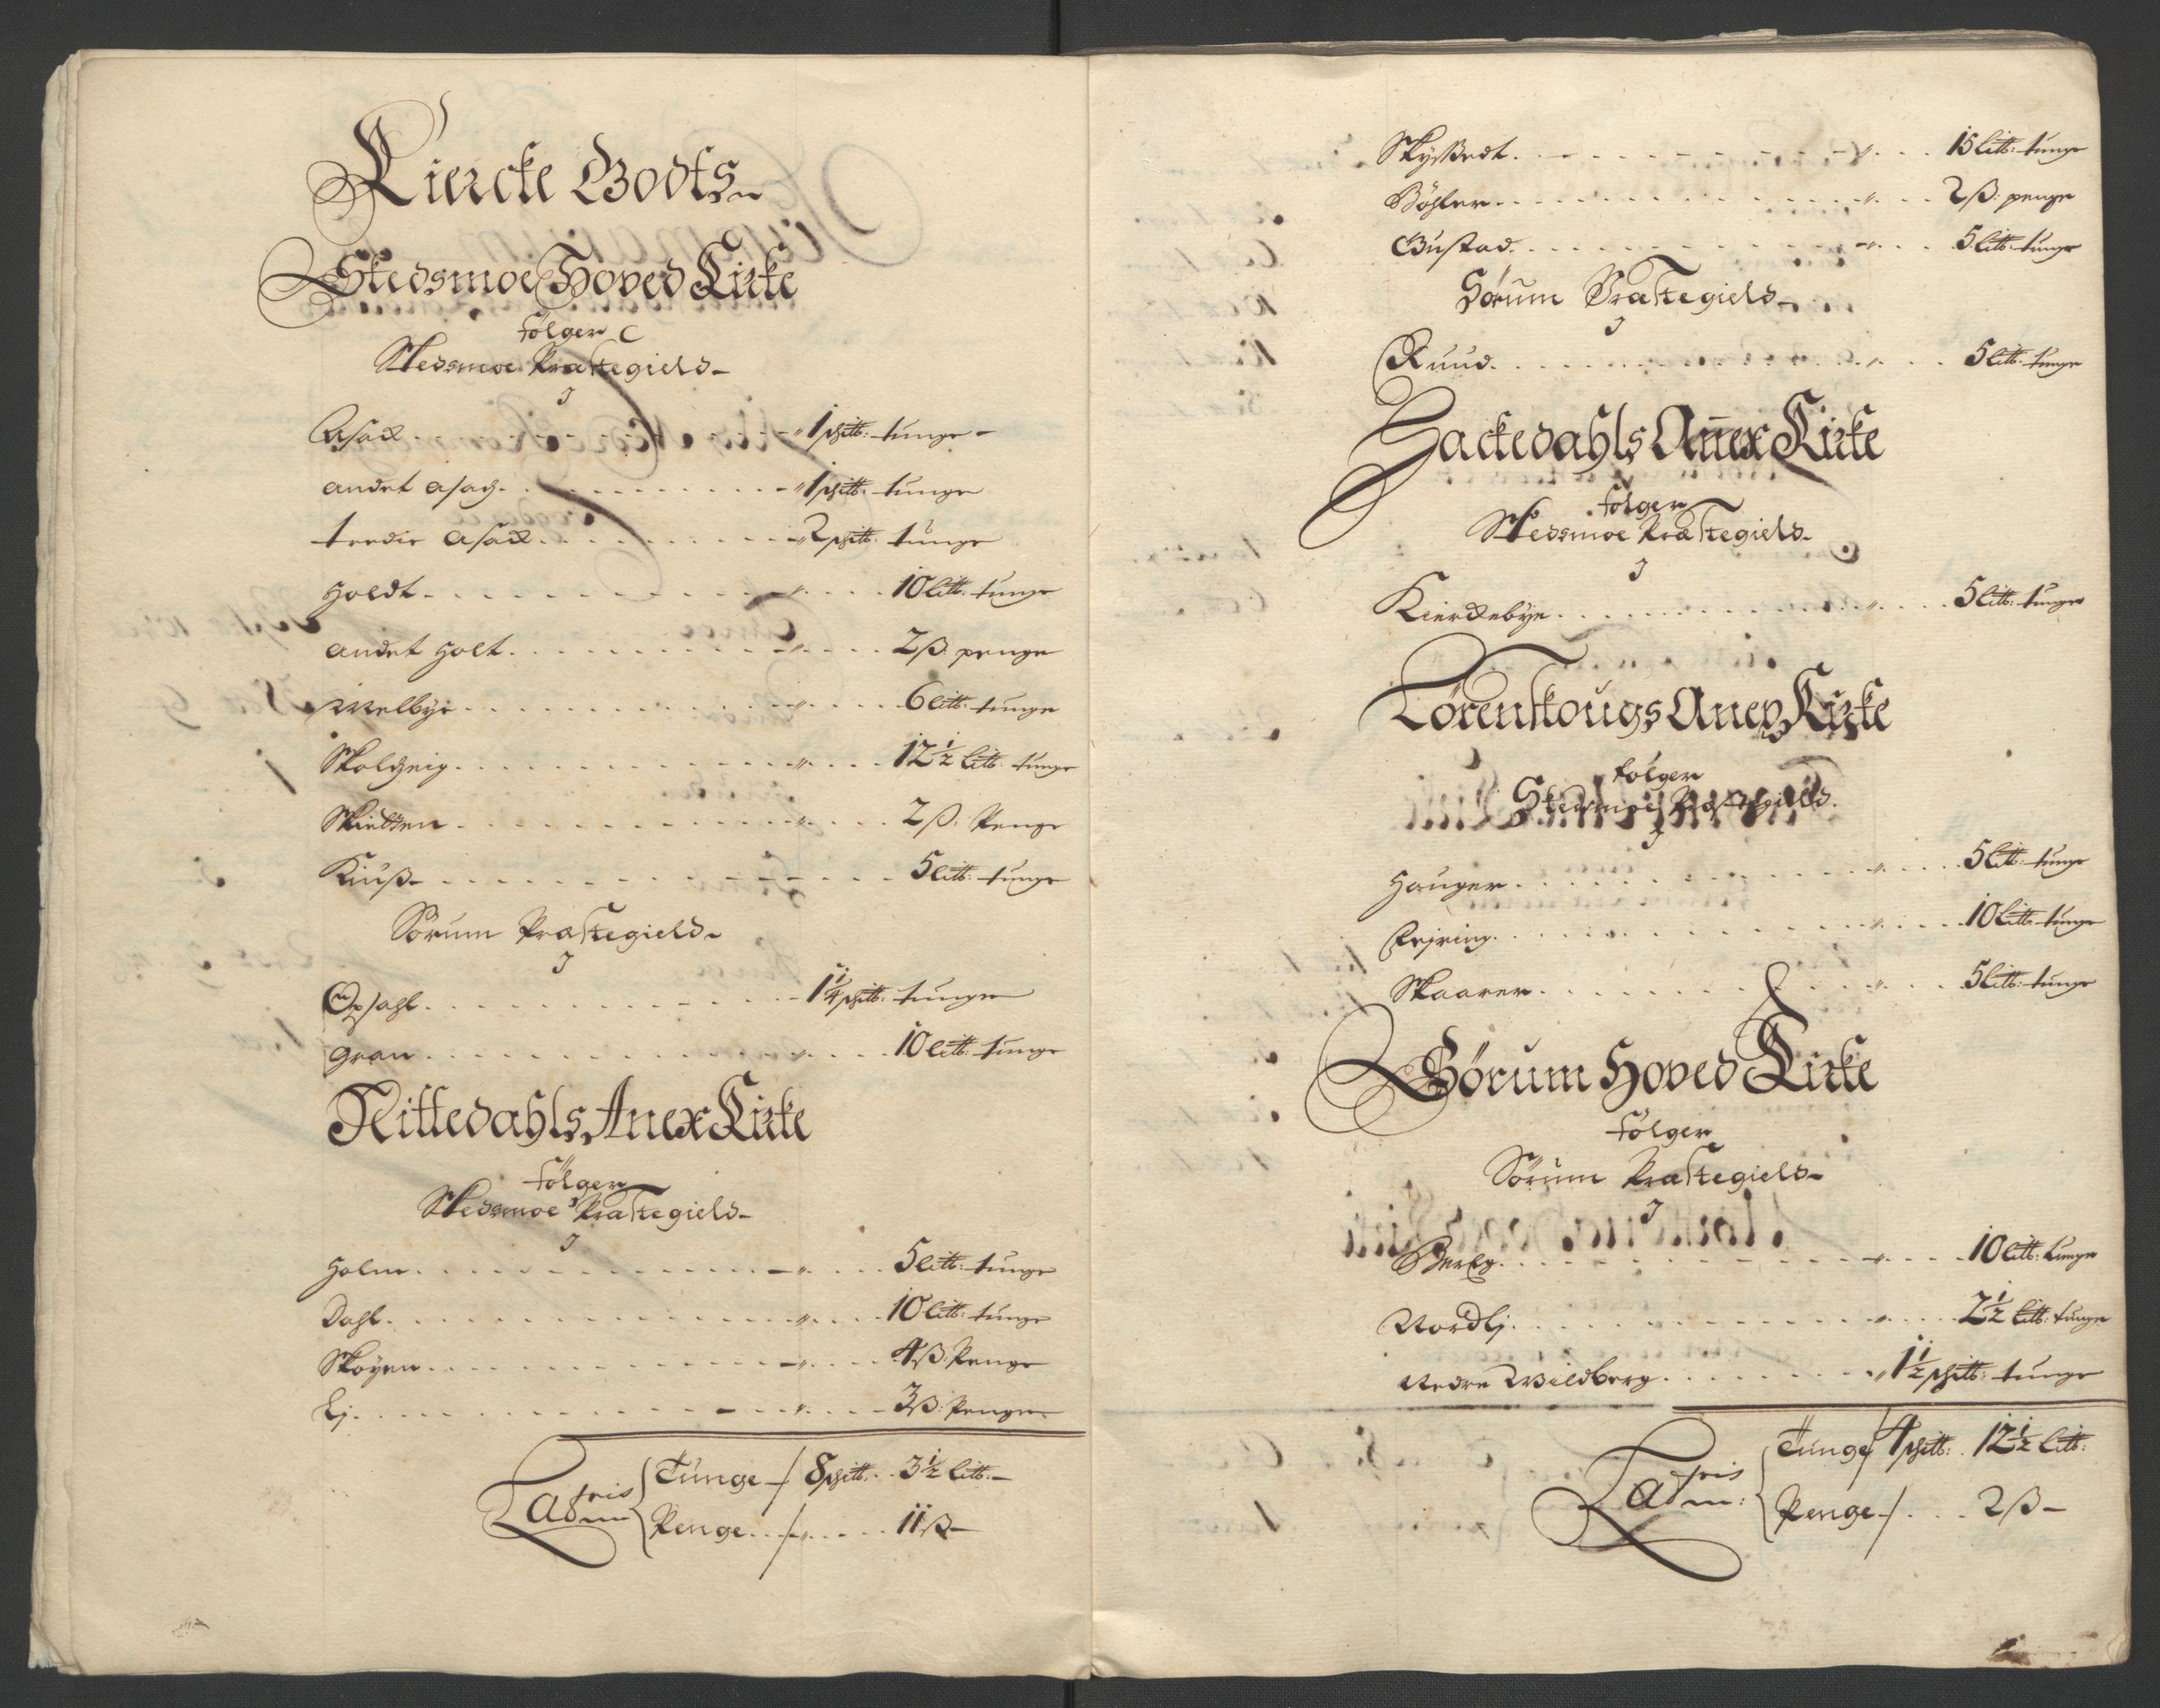 Kiercke Godts
Skedsmoe Hoved Kirke
følger
Skedsmoe Præstegield
J
Asack 1 schtt: tunge
andet asach 1 schtt: tunge
tredie asack 2 schtt: tunge
Holdt 10 litt: tunge
andet Holt 2 ß: penge
Welbye 6 litt: tunge
12½ litt: tunge
Skietten 2 ß: Penge
Kiuß 5 litt: tunge
Sørum Præstegield
J
Opsahl 1¼ schtt: tunge
Gran 10 litt: tunge
Nittedahls Anex Kirke
følger
Skedsmoe Præstegield
J
Holm 5 litt: tunge
Dahl 10 litt: tunge
Skøyen 4 ß: Penge
Lj 3 ß: Penge
Latris Tunge 8 schtt: 3½ litt:
adm: Penge 11 ß
Skysßedt 15 litt: tunge
Bøhler 2 ß: penge
Gustad 5 litt: tunge
Sørum Præstegield
J
Ruud 5 litt: tunge
Hackedahls Annex Kirke
følger
Skedsmoe Præstegield
J
Kierckebye 5 litt: tunge
Lørenskougs Anex Kirke
følger
Skedsmoe Præstegield
J
Hauger 5 litt: tunge
10 litt: tunge
Skaarer 5 litt: tunge
Sørum Hoved Kirke
følger
Sørum Præstegield
J
Berg 10 litt: tunge
Nordlj 2½ litt: tunge
Nedre Wildberg 1½ schtt: tunge
Latris Tunge 4 schtt: 12½ litt:
adm: Penge 2 ß